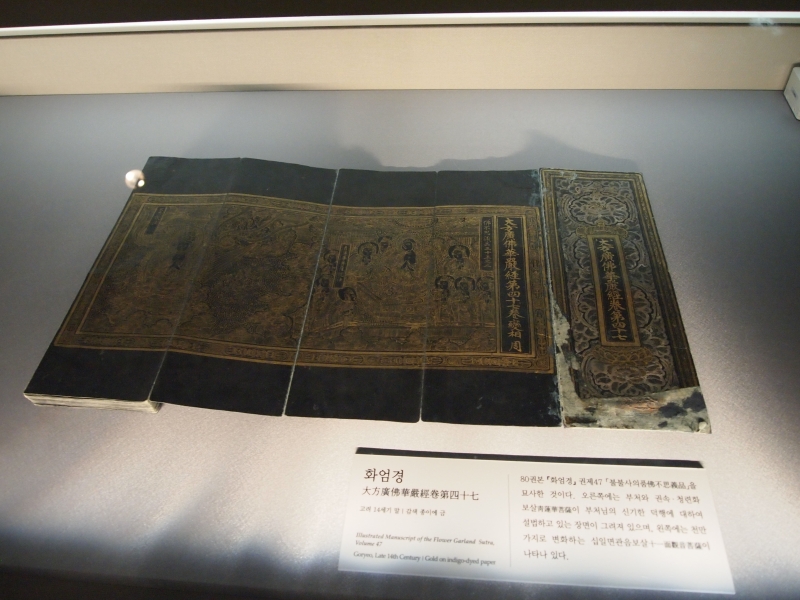 大方廣佛華嚴經第四十
大方廣佛華嚴經卷第四十七
화엄경
大方廣佛華嚴經卷第四十七
고려 14세기 말 | 감색 종이에 금
Illustrated Manuscript of the Flower Garland Sutra,
Volume 47
Goryeo, Late 14th Century | Gold on indigo-dyed paper
80권본 『화엄경』 권제47 「불불사의품佛不思義品」을
묘사한 것이다. 오른쪽에는 부처와 권속·청련화
보살靑蓮華菩薩이 부처님의 신기한 덕행에 대하여
설법하고 있는 장면이 그려져 있으며, 왼쪽에는 천만
가지로 변화하는 십일면관음보살十一面觀音菩薩이
나타나 있다.